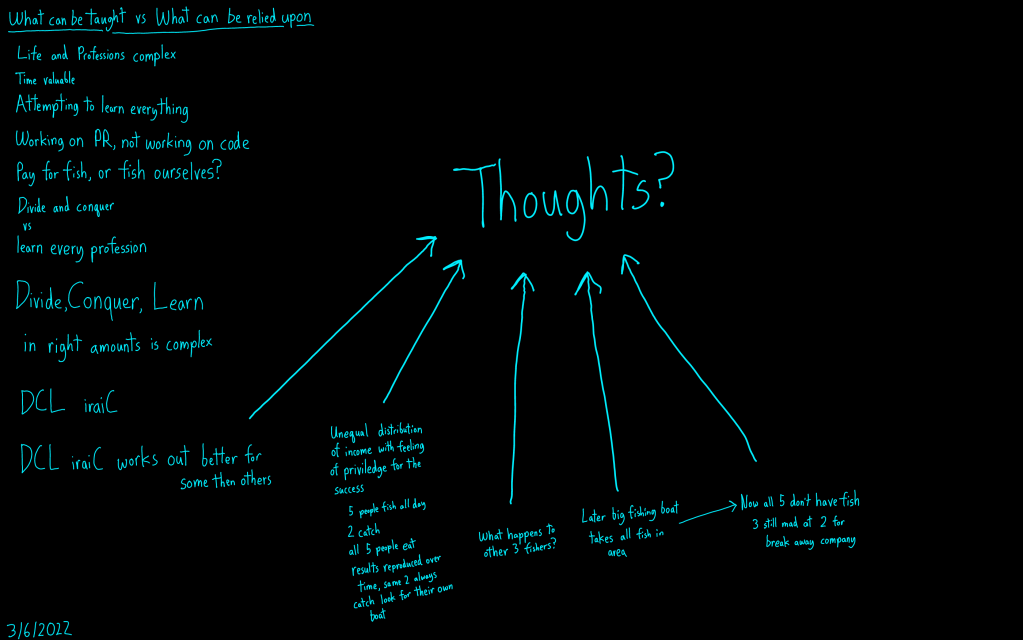 What can be taught vs What can be relied upon
Life and Professions complex
Time valuable
Attempting to learn everything
Working on PR, not working on code
Pay for fish, or fish ourselves?
Divide and conquer
vs
learn every profession
Divide, Conquer, Learn
in right amounts is complex
DCL iraiC
DCL iraiC works out better for
some then others
Thoughts?
Unequal distribution
of income with feeling
of priviledge for the
success
5 people fish all day
2 catch
all 5 people eat
results reproduced over
time, same 2 always
catch look for their own
boat
What happens to
other 3 fishers?
Later big fishing boat
takes all fish in
area
Now all 5 don't have fish
3 still mad at 2 for
break away company
3/6/2022